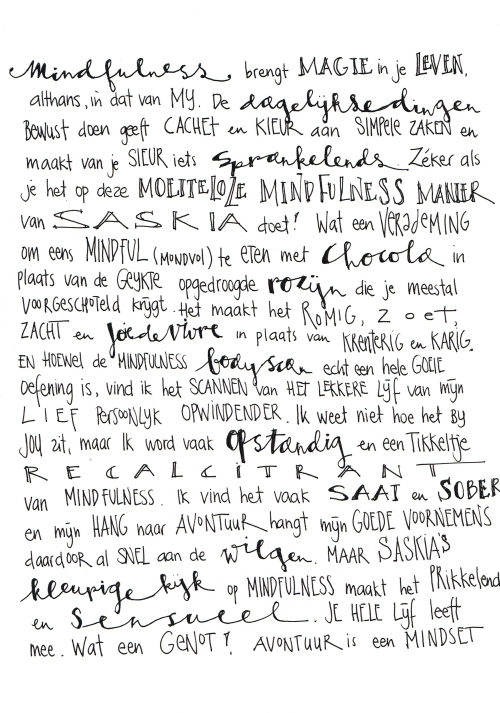 Mindfulness, brengt MAGIE in je LEVEN,
althans, in dat van MY. De dagelijkse dingen
BEWUST doen geeft CACHET en KLEUR aan SIMPELE ZAKEN en
maakt van je SIEUR iets Sprankelends. Zéker als
je het op deze MOEITELOZE MINDFULNESS MANIER
van SASKIA doet! Wat een VERADEMING
om eens MINDFUL (MONDVOL) te eten met Chocola in
plaats van de GEIJKTE opgedroogde rozijn die je meestal
VOORGESCHOTELD krijgt. Het maakt het ROMIG, zoet,
ZACHT en Joie de Vivre in plaats van KRENTERIG en KARIG.
EN HOEWEL de MINDFULNESS bodyscan echt een hele GOEIE
oefening is, vind ik het SCANNEN van HET LEKKERE Lijf van mijn
LIEF PERSOONLIJK OPWINDENDER. Ik weet niet hoe het BY
JOU zit, maar Ik word vaak Opstandig en een Tikkeltje
RECALCITRANT
van MINDFULNESS. Ik vind het vaak SAAI en SOBER
en mijn HANG naar AVONTUUR hangt mijn GOEDE VOORNEMENS
daardOOR al SNEL aan de wilgen. MAAR SASKIA'S
kleurige kijk op MINDFULNESS maakt het PRikkelend
en Sensueel. JE HELE Lijf leeft
mee. Wat een GENOT! AVONTUUR is een MINDSET